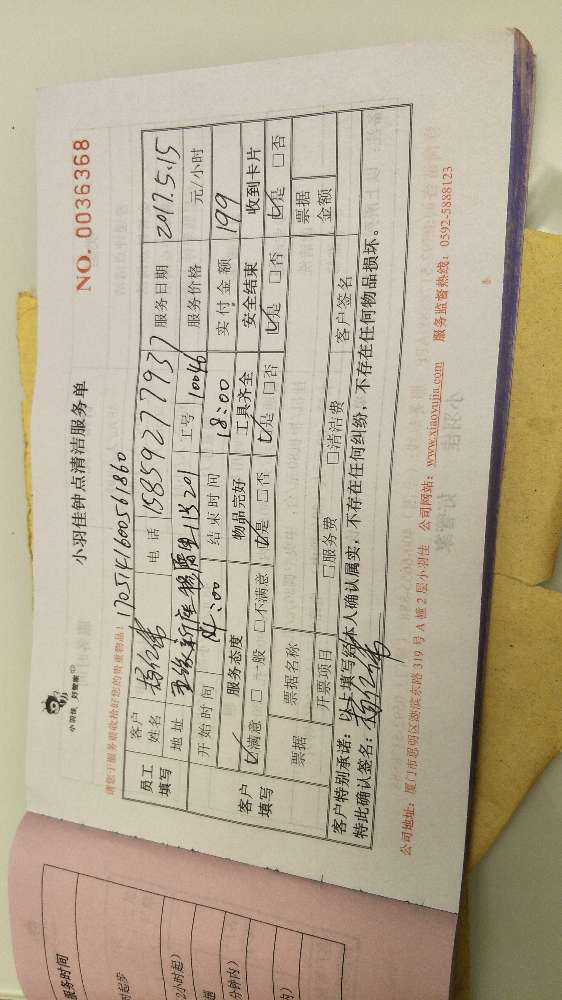 小羽佳 好管家
小羽佳钟点清洁服务单
NO. 0036368
请您于服务前收拾好您的贵重物品! 1705141600561860
员工填写
客户姓名
电话 15859277937
服务日期 2017.5.15
地址
工号 10046
服务价格 元/小时
开始时间
结束时间 18:00
实付金额 199
客户填写
服务态度 物品完好 工具齐全 安全结束 收到卡片
☑满意 □一般 □不满意 ☑是 □否 ☑是 □否 ☑是 □否 ☑是 □否
票据 票据名称 票据金额
开票项目 □服务费 □清洁费 客户签名
客户特别承诺:以上填写经本人确认属实,不存在任何纠纷,不存在任何物品损坏。
特此确认签名:
公司地址:厦门市思明区湖滨东路 319 号 A 幢 2 层小羽佳 公司网站:www.xiaoyujia.com 服务监督热线:0592-5888123
服务时间
时起步
2小时起)
分钟内)
内)